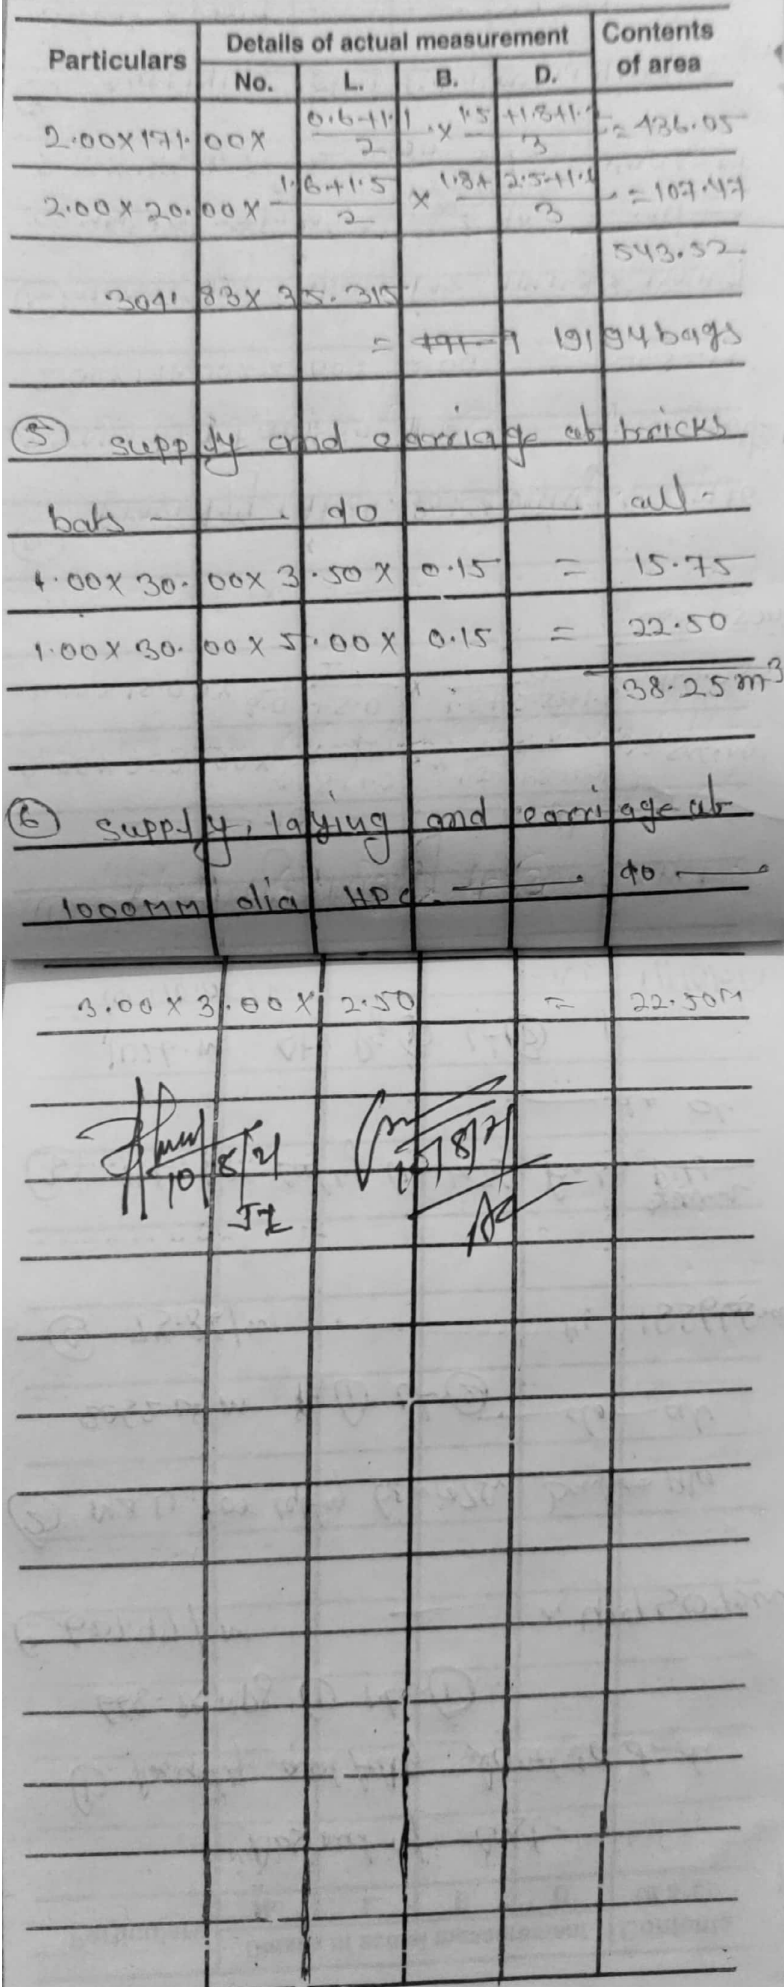 Particulars Details of actual measurement Contents of area
No. L. B. D.
2.00 x 171.00 x (0.6+1.1)/2 x (1.5+1.8+1. )/3 = 436.05
2.00 x 20.00 x (1.6+1.5)/2 x (1.8+2.5+1.1)/3 = 107.47
543.52
83 x 35.315
= 19194 bags
⑤ supply and carriage of bricks
bats — do — all
1.00 x 30.00 x 3.50 x 0.15 = 15.75
1.00 x 30.00 x 5.00 x 0.15 = 22.50
38.25 m³
⑥ supply, laying and carriage of
1000MM dia HPC — do —
3.00 x 3.00 x 2.50 = 22.50M
10/8/21 10/8/21
JE